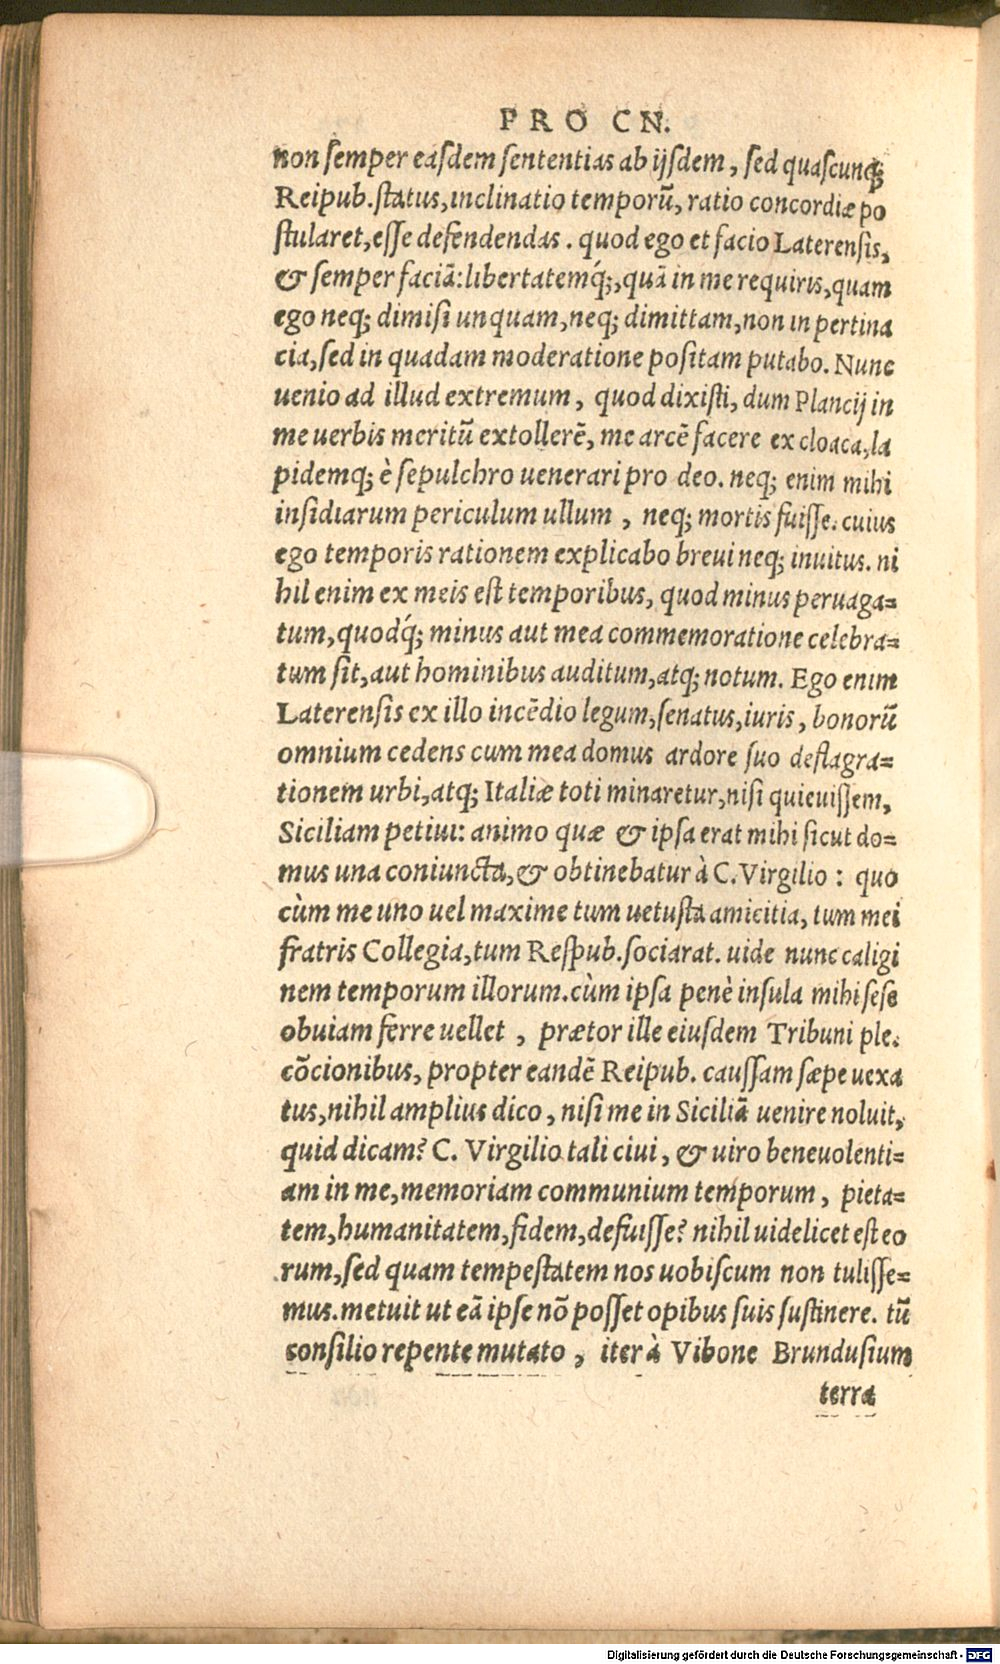 PRO CN.
non semper easdem sententias ab ijsdem, sed quascunq;
Reipub. status, inclinatio temporū, ratio concordiæ po
stularet, esse defendendas. quod ego et facio Laterensis,
& semper faciā: libertatemq́;, quā in me requiris, quam
ego neq; dimisi unquam, neq; dimittam, non in pertina
cia, sed in quadam moderatione positam putabo. Nunc
uenio ad illud extremum, quod dixisti, dum Plancij in
me uerbis meritū extollerē, me arcē facere ex cloaca, la
pidemq; è sepulchro uenerari pro deo. neq; enim mihi
insidiarum periculum ullum, neq; mortis fuisse. cuius
ego temporis rationem explicabo breui neq; inuitus. ni
hil enim ex meis est temporibus, quod minus peruaga=
tum, quodq́; minus aut mea commemoratione celebra=
tum sit, aut hominibus auditum, atq; notum. Ego enim
Laterensis ex illo incēdio legum, senatus, iuris, bonorū
omnium cedens cum mea domus ardore suo deflagra=
tionem urbi, atq; Italiæ toti minaretur, nisi quieuissem,
Siciliam petiui: animo quæ & ipsa erat mihi sicut do=
mus una coniuncta, & obtinebatur à C. Virgilio: quo
cùm me uno uel maxime tum uetusta amicitia, tum mei
fratris Collegia, tum Respub. sociarat. uide nunc caligi
nem temporum illorum. cùm ipsa penè insula mihi sese
obuiam ferre uellet, prætor ille eiusdem Tribuni ple.
cōcionibus, propter eandē Reipub. caussam sæpe uexa
tus, nihil amplius dico, nisi me in Siciliā uenire noluit,
quid dicam? C. Virgilio tali ciui, & uiro beneuolenti=
am in me, memoriam communium temporum, pieta=
tem, humanitatem, fidem, defuisse? nihil uidelicet est eo
rum, sed quam tempestatem nos uobiscum non tulisse=
mus. metuit ut eā ipse nō posset opibus suis sustinere. tū
consilio repente mutato, iter à Vibone Brundusium
terra
Digitalisierung gefördert durch die Deutsche Forschungsgemeinschaft - DFG